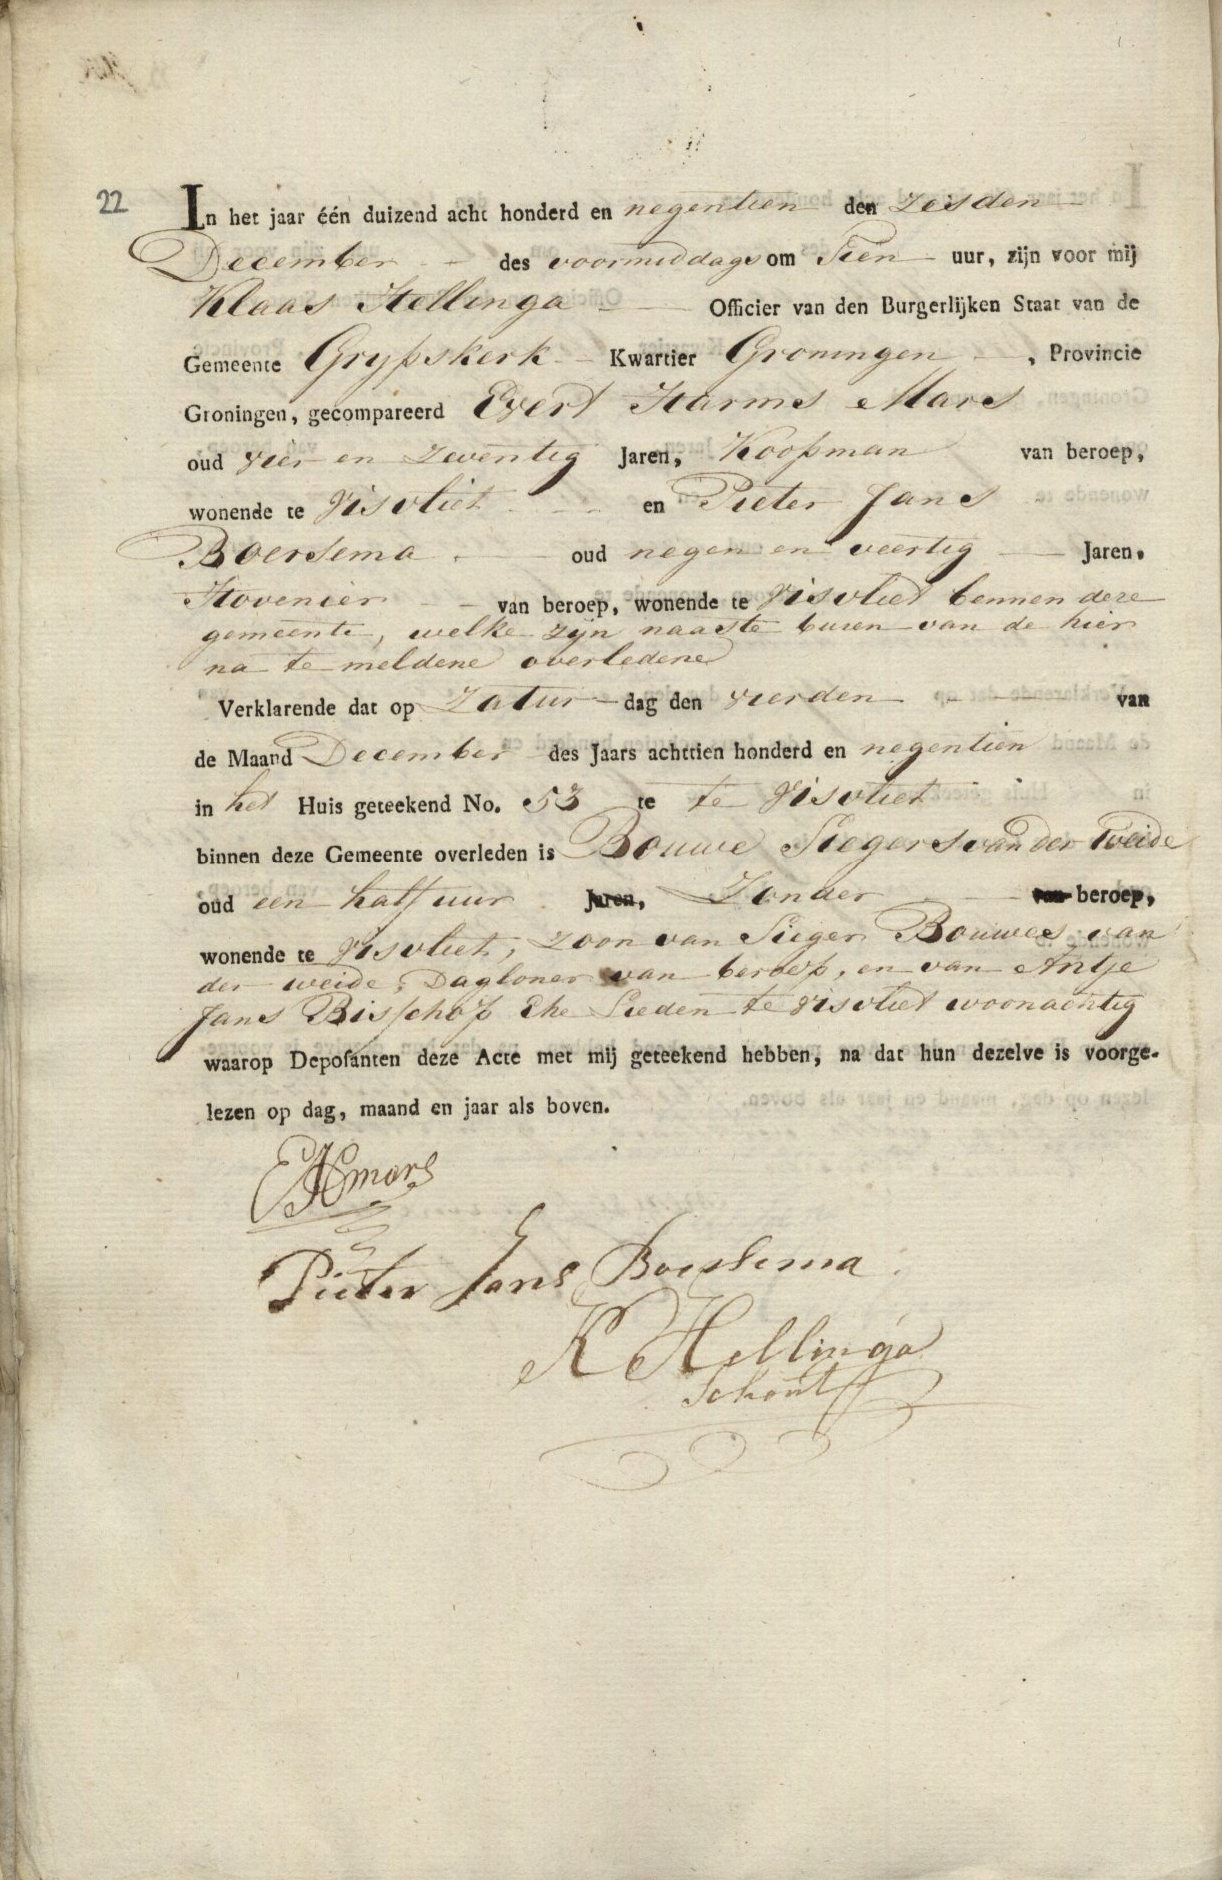 22
In het jaar één duizend acht honderd en negentien den zesden
December des voormiddags om Tien uur, zijn voor mij
Klaas Hellinga Officier van den Burgerlijken Staat van de
Gemeente Grypskerk Kwartier Groningen, Provincie
Groningen, gecompareerd Evert Harms Mars
oud vier en zeventig Jaren, Koopman van beroep,
wonende te Visvliet en Pieter Jans
Boersema oud negen en veertig Jaren.
Hovenier van beroep, wonende te Visvliet bennen deze
gemeente, welke zijn naaste buren van de hier
na te meldene overledene
Verklarende dat op Zatur dag den vierden van
de Maand December des Jaars achttien honderd en negentien
in het Huis geteekend No. 53 te te Visvliet
binnen deze Gemeente overleden is Bouwe Siegers van der Weide
oud een half uur Jaren, Zonder van beroep,
wonende te Visvliet, zoon van Sieger Bouwes van
der weide, Dagloner van beroep, en van Antje
Jans Bisschop Ehe Lieden te Visvliet woonachtig
waarop Deposanten deze Acte met mij geteekend hebben, na dat hun dezelve is voorge-
lezen op dag, maand en jaar als boven.
EHmars
Pieter Jans Boersema
K Hellinga
Schout